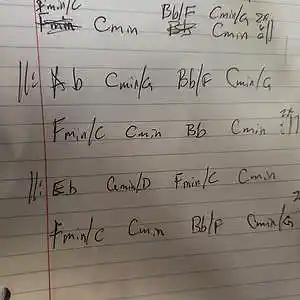 Fmin/C Bb/F Cmin/G 2x
Cmin Cmin :||
||: Ab Cmin/G Bb/F Cmin/G
Fmin/C Cmin Bb Cmin 2x :||
||: Eb Gmin/D Fmin/C Cmin
Fmin/C Cmin Bb/F Cmin/G 2